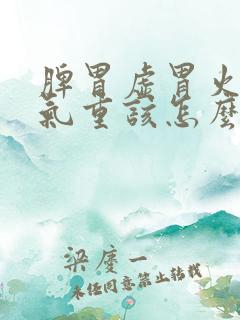 脾胃虚胃火
氣重該怎麼
梁慶一
未经同意禁止转载